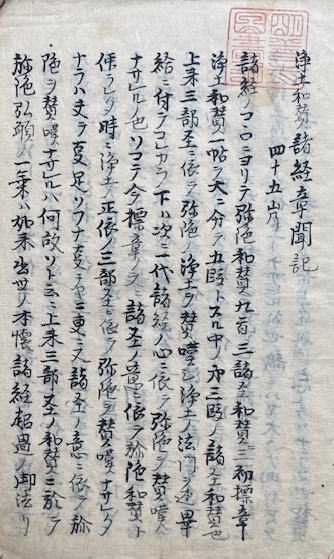 浄土和賛諸経章聞記
四十五
諸経ノコヽロニヨリテ弥陀和賛九首三諸圣和賛三初標章
浄土和賛一帖ヲ大ニ分テ五段トスル中ノ第三段ノ諸圣和賛也
上来三部圣ニ依テ弥陀ノ浄土ヲ賛嘆シ浄土ノ法門ヲ述畢
給ニ付テコレカラ下ハ次ニ一代諸経ノ心ニ依テ弥陀ヲ賛嘆
ナサルヽ也ソコテ今標章ノ文諸圣ノ意ニ依テ弥陀和賛ト
時ニ浄土ノ正依ノ三部圣ニ依テ弥陀ヲ賛嘆ナサレタ
ナラハ夫ヲ事足ソフナ事ナルニ重テ又諸圣ノ意ニ依テ弥
陀ヲ賛嘆ナサルヽハ何故ソト云ニ上来三部圣ノ和賛ニ於テ
弥陀弘願ノ一乗ハ如来出世ノ本懐諸経超異ノ御法リ